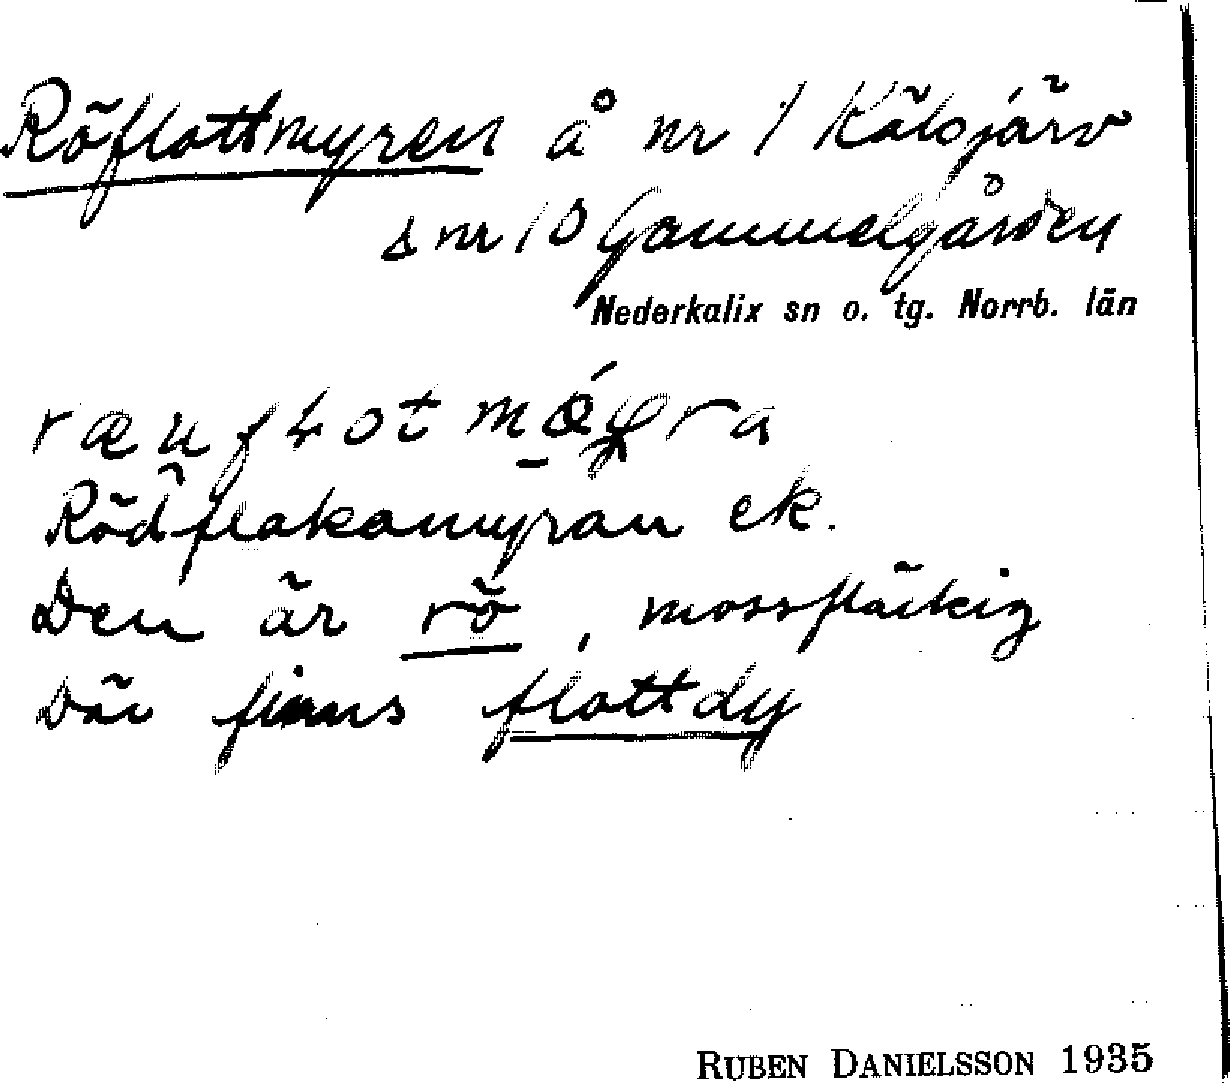 Röflottmyren å nr 1 Kälsjärv
s nr 10 Gammelgården
Nederkalix sn o. tg. Norrb. län
Rödflakamyran ek.
Den är rö, mossfläckig
Där finns flottdy
RUBEN DANIELSSON 1935